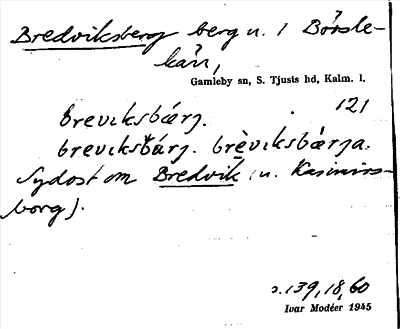 Bredviksberg berg n. i Börsle-
kån,
Gamleby sn, S. Tjusts hd, Kalm. l.
121
brevɩksbárj.
brevɩksbárj. brèvɩksbárja.
Sydost om Bredvik (u. Kasimirs-
borg).
s. 139, 18, 60
Ivar Modéer 1945